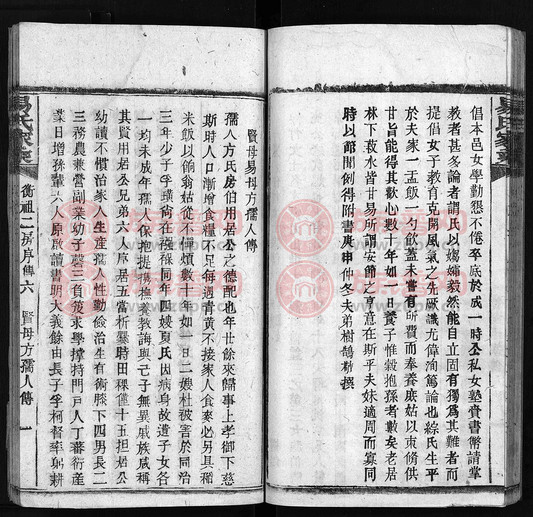 倡本邑女學勸懇不倦卒底於成一時公私女塾賁書幣請掌
教者甚多論者謂氏以孀婦毅然能自立固有獨爲其難者而
提倡女子教育克開風氣之先厥識尤偉洵篤論也綜氏生平
於夫家一盂飯一勺飲蓋未嘗有所費而奉養庶姑以束脩供
甘旨能得其歡心數十年如一日養子惟毅抱孫者數矣老居
林下菽水皆甘易所謂安節之亨意在斯乎夫妹適周而寡同
時以節聞例得附書庚申仲冬夫弟樹鵠撰
賢母易母方孺人傳
孺人方氏房伯用居公之德配也年廿餘來歸事上孝御下慈
斯時人口漸增食糧不足每週青黃不接家人食麥必另具稻
米飯以餉翁姑從不憚煩數十年如一日二嫂杜被害於同治
三年少子孚璜尚在襁褓同年四嫂夏氏因病身故遺子女各
一均未成年孺人保抱提攜撫養教誨與己子無異戚族咸稱
其賢用居公兄弟六人序居五當析爨時田稞僅十五担居公
幼讀不慣治家人生產孺人性勤儉治生有術膝下四男長二
三務農兼營副業幼子馨三負笈求學撐持門戶人丁蕃衍產
業日增孫輩六人原啟讀書明大義餘由長子孚柯督率躬耕
易氏家乘
衡祖二房序傳六
賢母方孺人傳
一